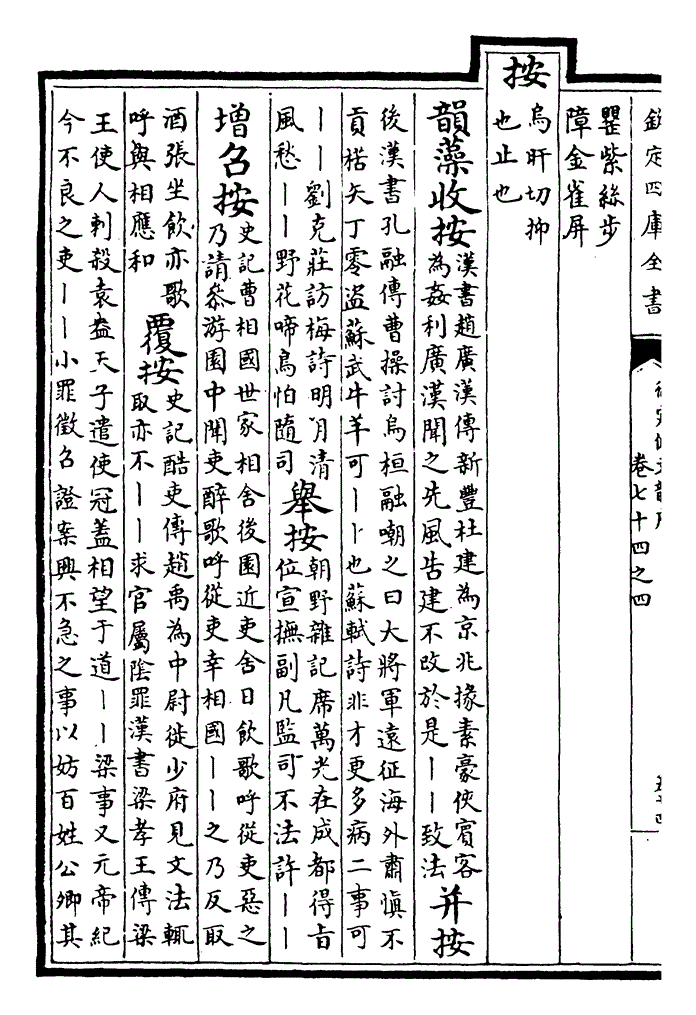 欽定四庫全書
卷七十四之四
紫絲步
障金雀屏
按
烏旰切抑
也止也
韻藻收按
漢書趙廣漢傳新豐杜建為京兆掾素豪俠賓客
為姦利廣漢聞之先風告建不改於是丨丨致法
并按
後漢書孔融傳曹操討烏桓融嘲之曰大將軍遠征海外肅慎不
貢楛矢丁零盜蘇武牛羊可丨丨也蘇軾詩非才更多病二事可
丨丨劉克莊訪梅詩明月清
風愁丨丨野花啼鳥怕隨司
舉按
朝野雜記席萬光在成都得旨
位宣撫副凡監司不法許丨丨
增召按
史記曹相國世家相舍後園近吏舍日飲歌呼從吏惡之
乃請叅游園中聞吏醉歌呼從吏幸相國丨丨之乃反取
酒張坐飲亦歌
呼與相應和
覆按
史記酷吏傳趙禹為中尉徙少府見文法輒
取亦不丨丨求官屬陰罪漢書梁孝王傳梁
王使人刺殺袁盎天子遣使冠蓋相望于道丨丨梁事又元帝紀
今不良之吏丨丨小罪徵召證案興不急之事以妨百姓公卿其